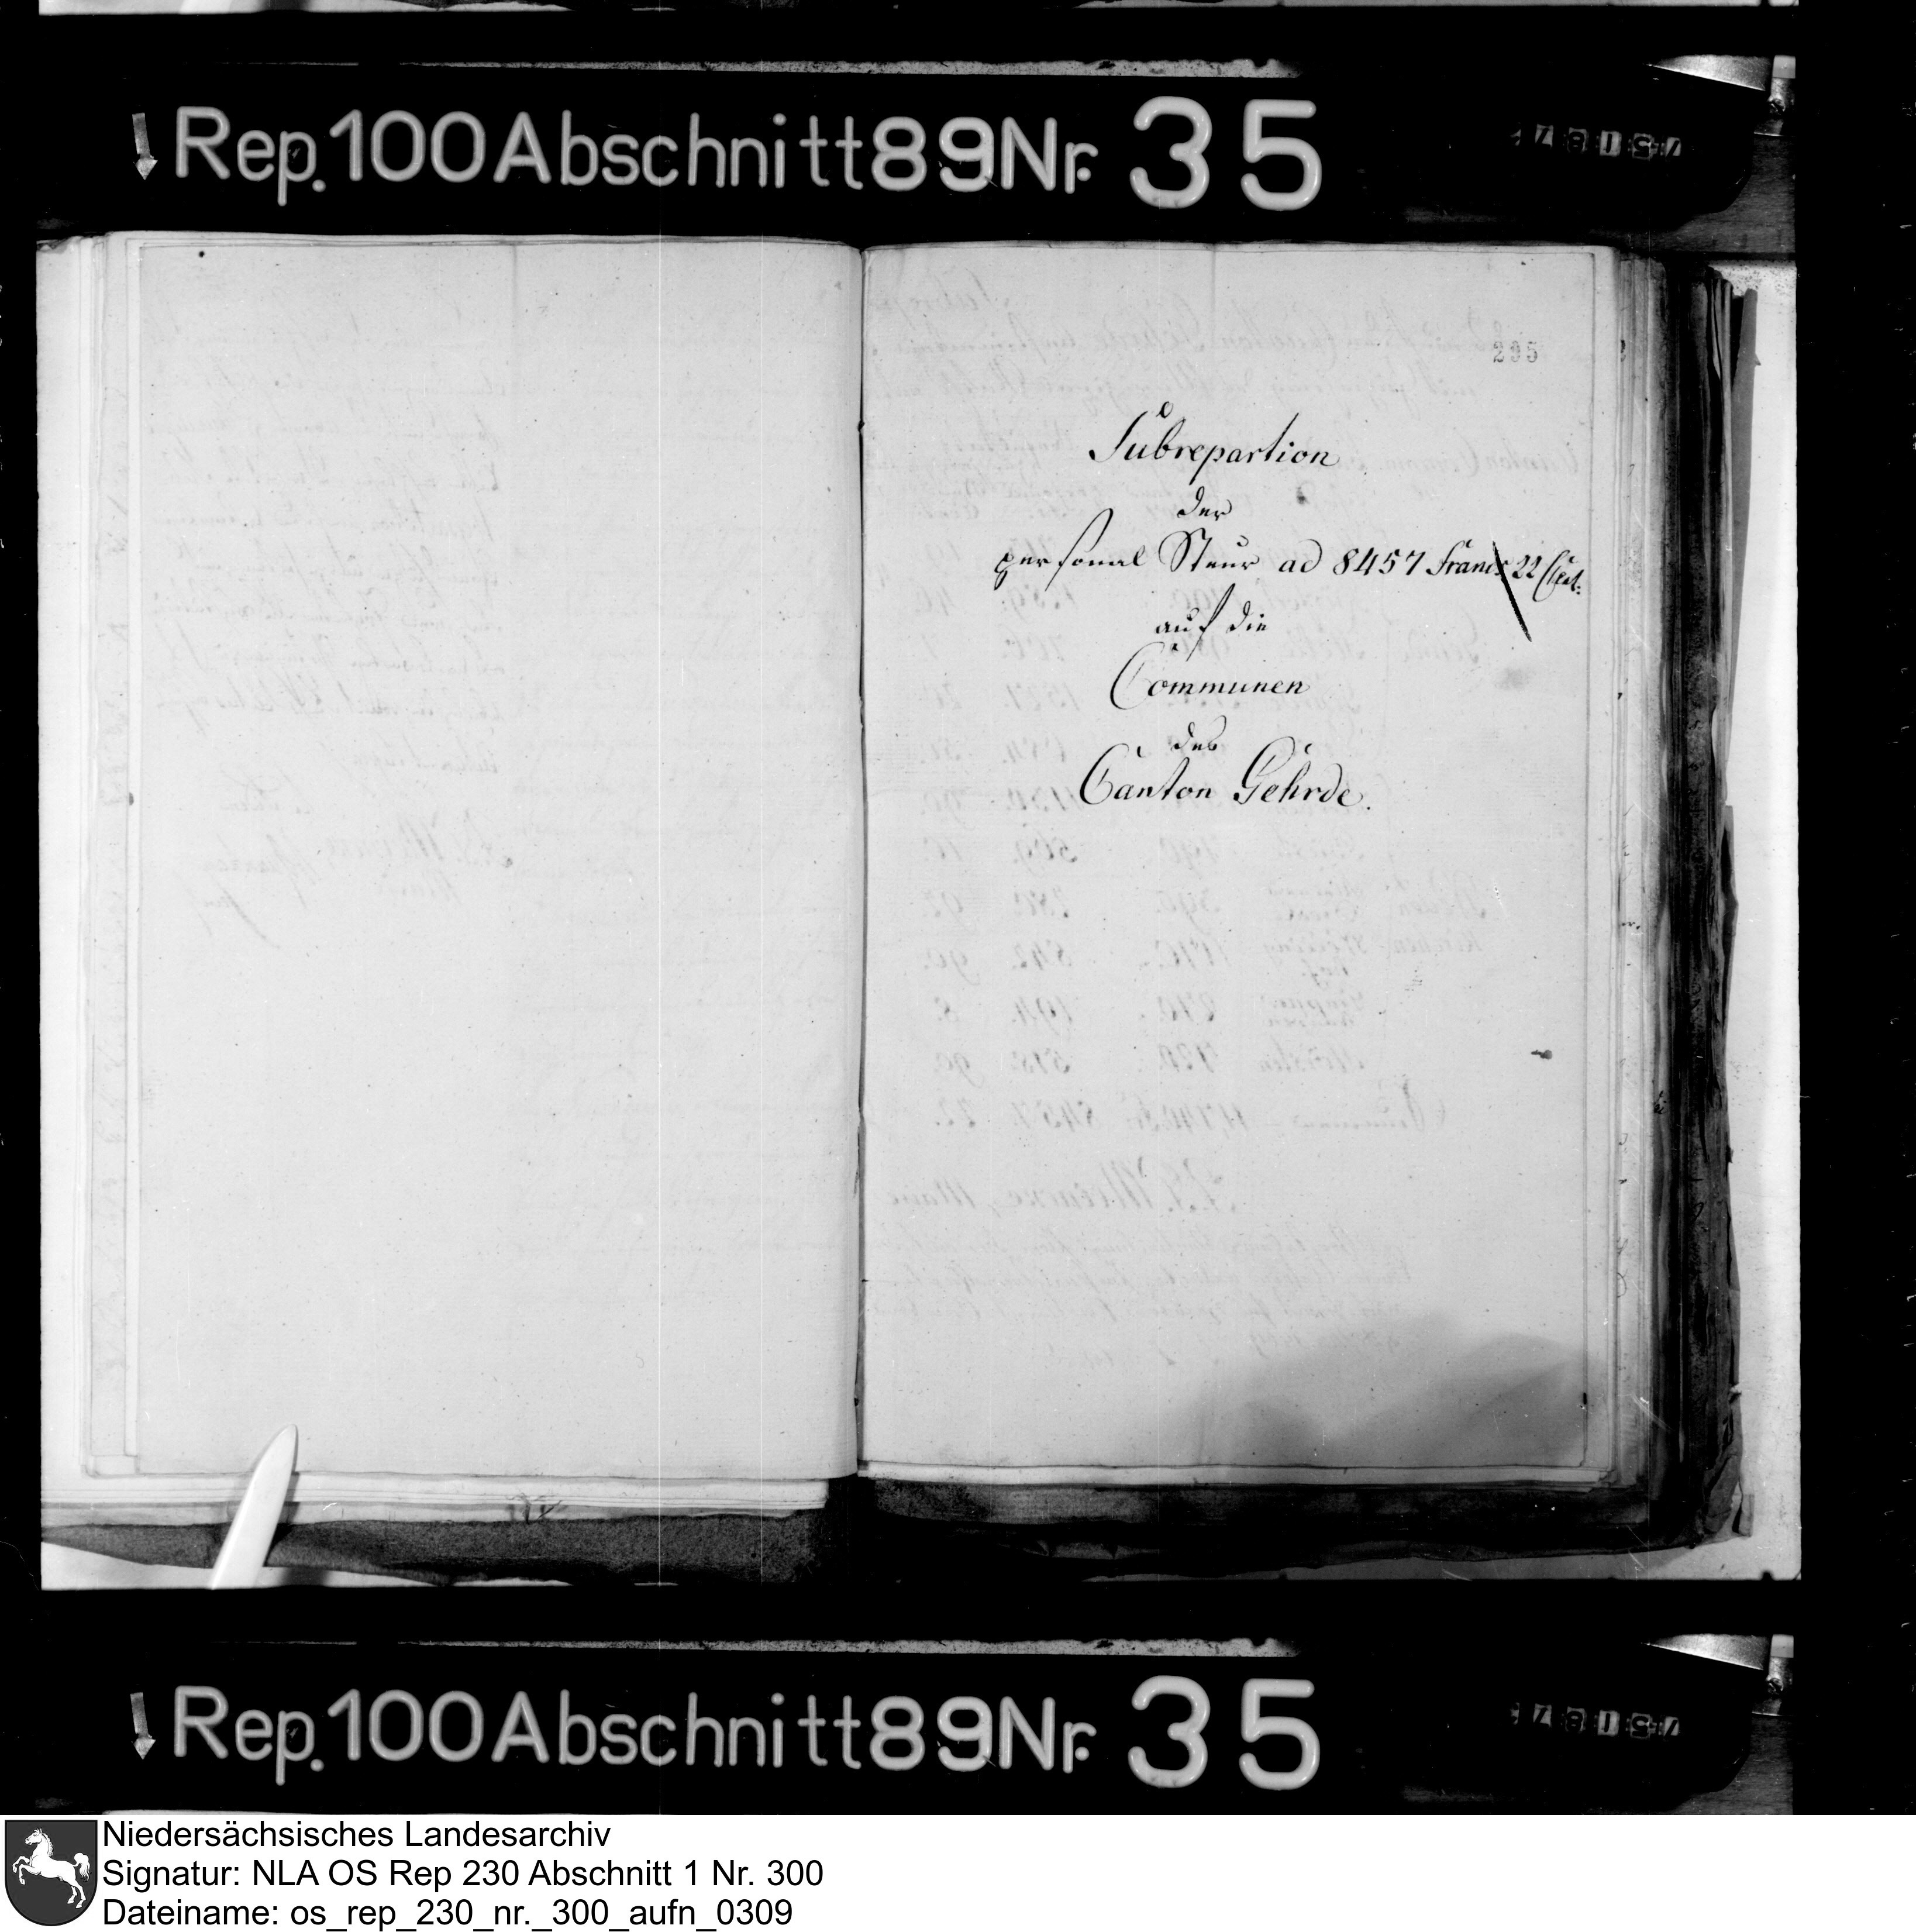 Rep. 100 Abschnitt 89 Nr. 35
295
Subrepartion
der
personal Steur ad 8457 Francs 22 Cent:
auf die
Communen
des
Canton Gehrde.
Rep. 100 Abschnitt 89 Nr. 35
Niedersächsisches Landesarchiv
Signatur: NLA OS Rep 230 Abschnitt 1 Nr. 300
Dateiname: os_rep_230_nr._300_aufn_0309